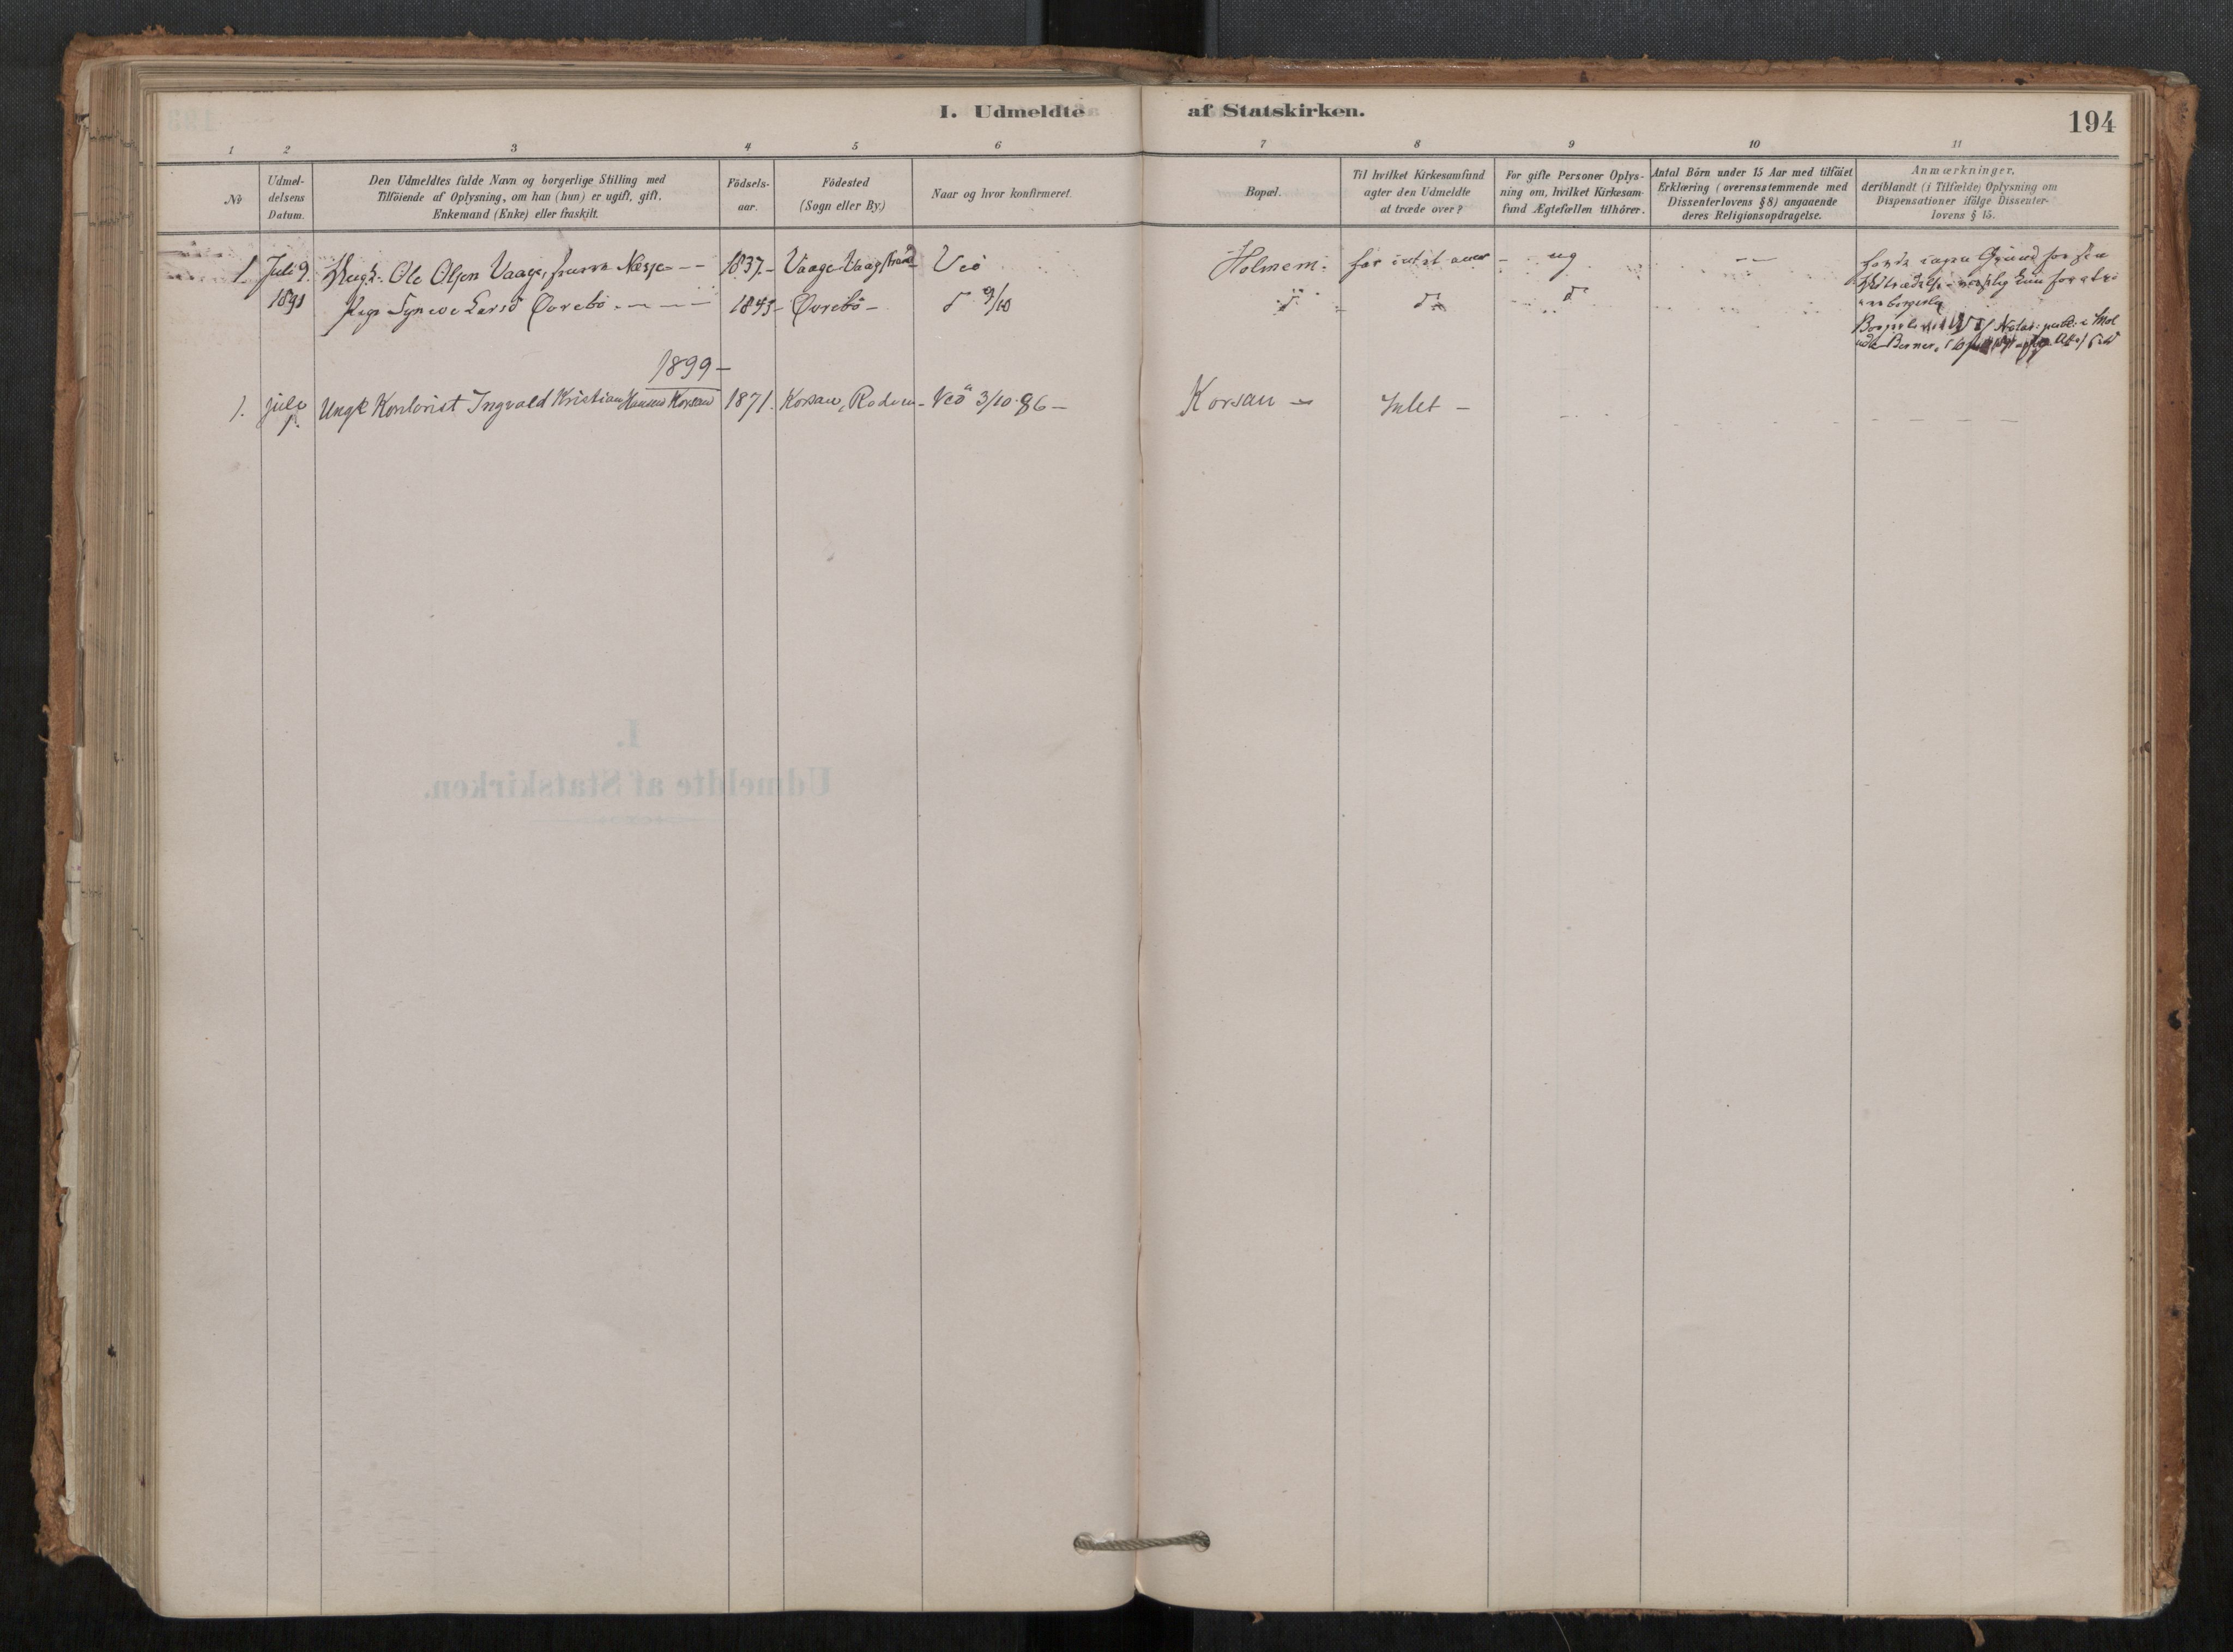 I. Udmeldte af Statskirken.
194
1 2 3 4 5 6 7 8 9 10 11
No
Udmel-
delsens
Datum.
Den Udmeldtes fulde Navn og borgerlige Stilling med
Tilföiende af Oplysning, om han (hun) er ugift, gift,
Enkemand (Enke) eller fraskilt.
Födsels-
aar.
Födested
(Sogn eller By.)
Naar og hvor konfirmeret.
Bopæl.
Til hvilket Kirkesamfund
agter den Udmeldte
at træde over?
For gifte Personer Oplys-
ning om, hvilket Kirkesam-
fund Ægtefællen tilhörer.
Antal Börn under 15 Aar med tilföiet
Erklæring (overensstemmende med
Dissenterlovens § 8) angaaende
deres Religionsopdragelse.
Anmærkninger,
deriblandt (i Tilfælde) Oplysning om
Dispensationer ifölge Dissenter-
lovens § 15.
1 Juli 9. Ole Olsen Vaage, Næsje 1837. Vaage Vaagstrand Veö Holmem. intet ug
1891 Pige Synove Larsd Øvrebö 1843 Øvrebö d 9/10 d d d
Grund for
1899
1. Juli Ungk Kontorist Ingvald Kristian Hansen Korsan 1871. Korsan, Rodven Veö 3/10 86 Korsan Intet
I.
Udmeldte af Statskirken.